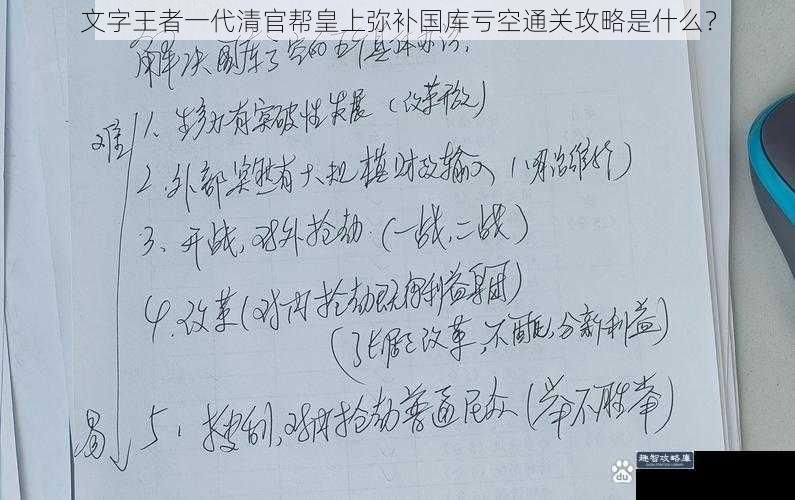 文字王者一代清官帮皇上弥补国库亏空通关攻略是什么？
解决国库亏空的五个具体办法：
难
1、生产力有突破性发展（改革开放）
2、外部突然有大规模财政输入（明治维新）
3、开战，对外抢劫.（一战，二战）
4.改革（对内抢劫既得利益集团）
改革，不
分新利益）
易 5、搜刮，对内抢劫普通民众（举不胜举）
趣智攻略库
du